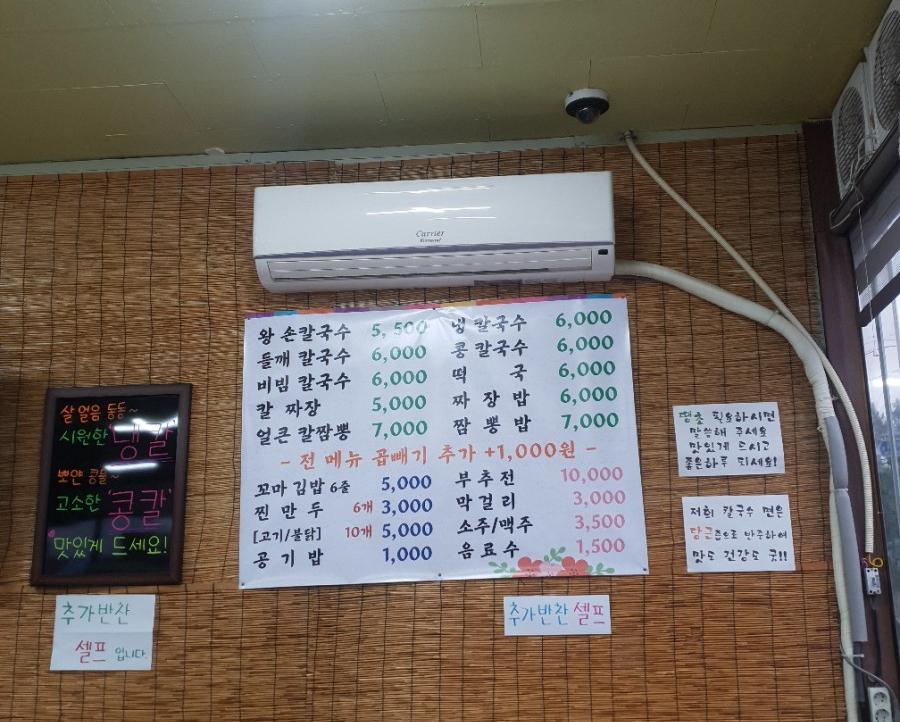 Carrier
왕 손칼국수 5,500
들깨 칼국수 6,000
비빔 칼국수 6,000
칼 짜장 5,000
얼큰 칼짬뽕 7,000
냉 칼국수 6,000
콩 칼국수 6,000
떡 국 6,000
짜 장 밥 6,000
짬 뽕 밥 7,000
- 전 메뉴 곱빼기 추가 +1,000원 -
꼬마 김밥 6줄 5,000
찐 만 두 6개 3,000
[고기/불닭] 10개 5,000
공 기 밥 1,000
부추전 10,000
막걸리 3,000
소주/맥주 3,500
음료수 1,500
살얼음 동동~
시원한 '냉칼'
뽀얀 콩물~
고소한 '콩칼'
맛있게 드세요!
추가반찬
셀프 입니다.
추가반찬 셀프
땡초 필요하시면
말씀해 주세요
맛있게 드시고
좋은하루 되세요!
저희 칼국수 면은
당근즙으로 반죽하여
맛도 건강도 굿!!